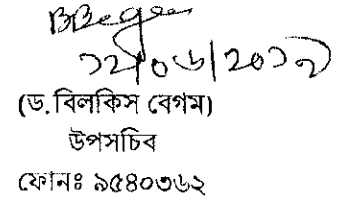 BBegum
১২/০৬/২০১৭
(ড. বিলকিস বেগম)
উপসচিব
ফোনঃ ৯৫৪০৩৬২